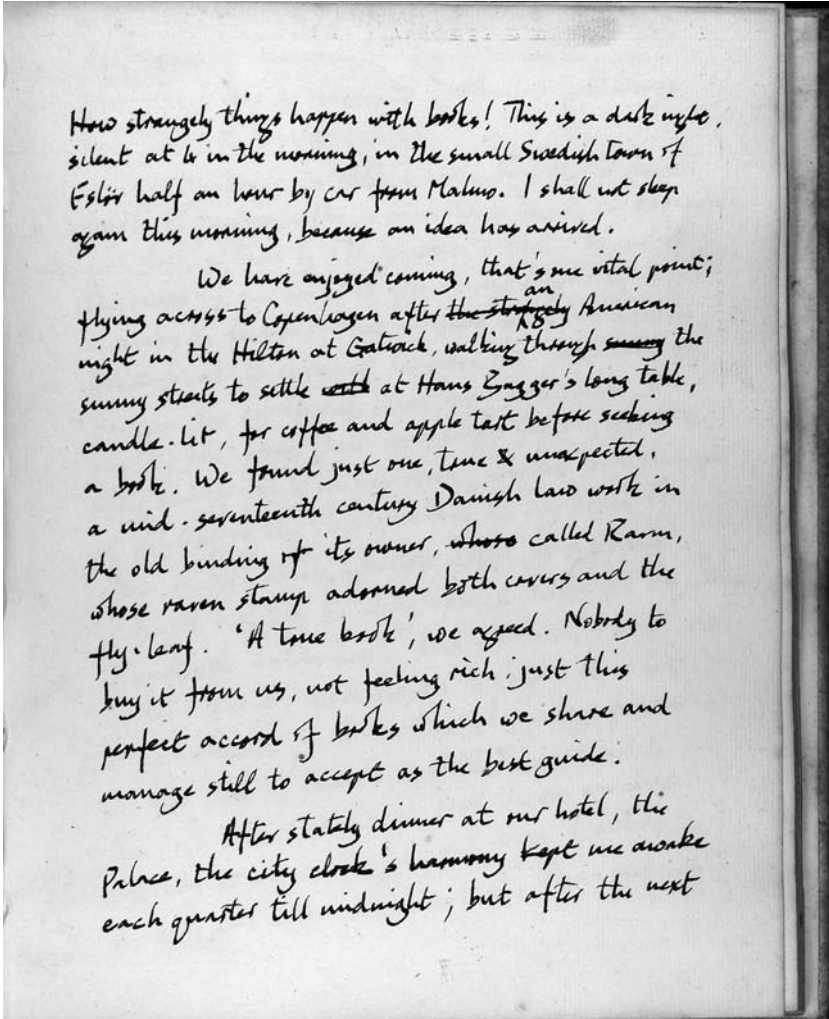 How strangely things happen with books! This is a dark night,
silent at 4 in the morning, in the small Swedish town of
Eslöv half an hour by car from Malmo. I shall not sleep
again this morning, because an idea has arrived.
We have enjoyed coming, that's one vital point;
flying across to Copenhagen after the strangely an American
night in the Hilton at Gatwick, walking through sunny the
sunny streets to settle with at Hans Bagger's long table,
candle-lit, for coffee and apple tart before seeking
a book. We found just one, true & unexpected,
a mid-seventeenth century Danish law work in
the old binding of its owner, whose called Ravn,
whose raven stamp adorned both covers and the
fly-leaf. 'A true book', we agreed. Nobody to
buy it from us, not feeling rich: just this
perfect accord of books which we share and
manage still to accept as the best guide.
After stately dinner at our hotel, the
Palace, the city clock's harmony kept me awake
each quarter till midnight; but after the next